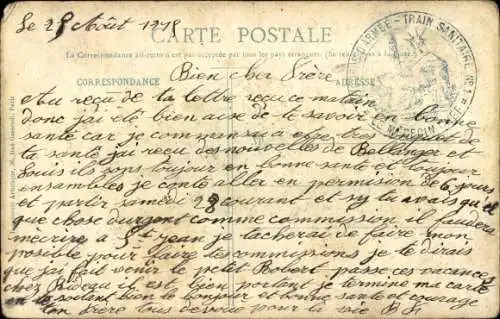 Le 25 Août 1918
CARTE POSTALE
La Correspondance au recto n'est pas acceptée par tous les pays étrangers. (Se renseigner à la Poste.)
CORRESPONDANCE
ADRESSE
ARMÉE - TRAIN SANITAIRE N° 1
MÉDECIN
Bien cher frère
Au reçu de ta lettre reçue ce matin
donc j'ai été bien aise de te savoir en bonne
santé car je commençai a etre tres de
ta santé j'ai reçu des nouvelles de Bellanger et
Louis ils sont toujour en bonne santé et toujour
ensambles je conte aller en permission de 6 jours
et partir samedi 28 courant et si tu avais quel
que chose durgent comme commission il faudera
mécrire a St jean je tacherai de faire mon
possible pour faire tes commissions je te dirais
que j'ai fait venir le petit Robert passe ces vacances
chez Rideau il est bien portant je termine ma carte
en te soutant bien le bonjour et bonne santé et courage
ton frère tous dévoué pour la vie